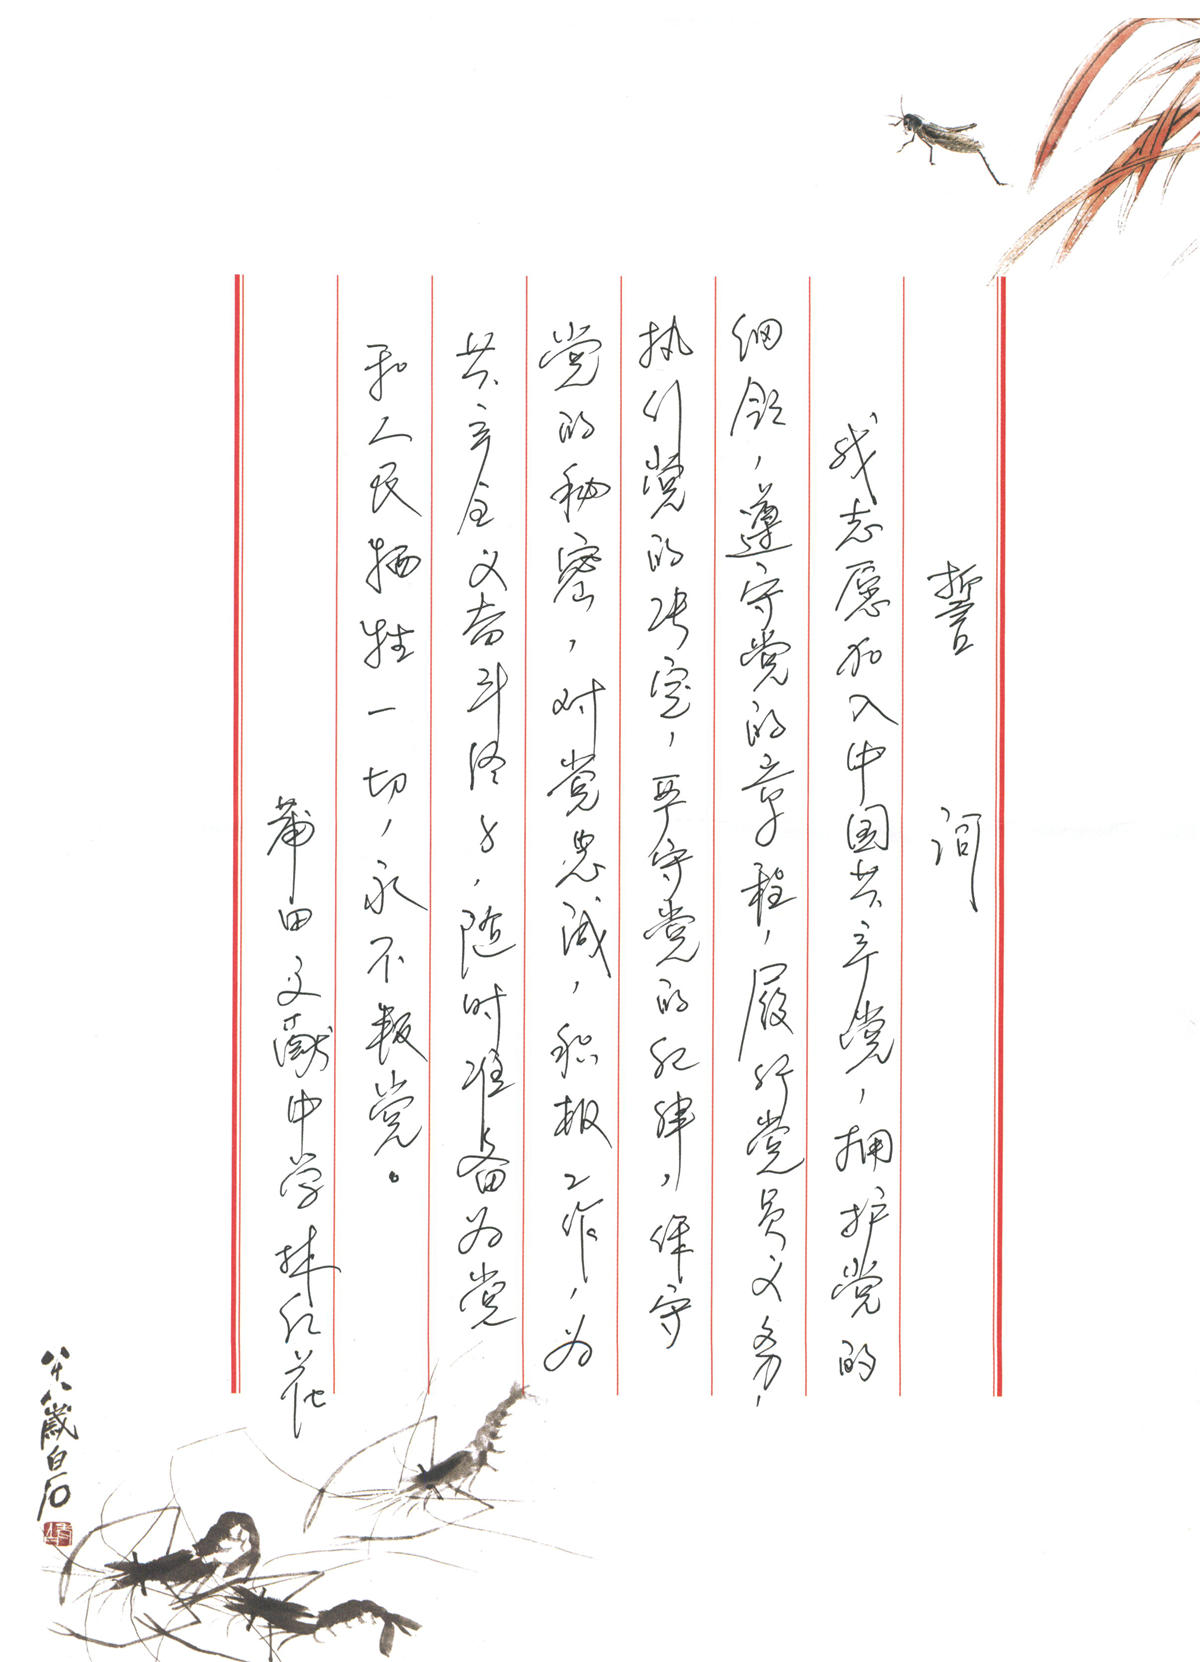 誓词
我志愿加入中国共产党，拥护党的
纲领，遵守党的章程，履行党员义务，
执行党的决定，严守党的纪律，保守
党的秘密，对党忠诚，积极工作，为
共产主义奋斗终身，随时准备为党
和人民牺牲一切，永不叛党。
莆田文献中学林红花
八十八歲白石